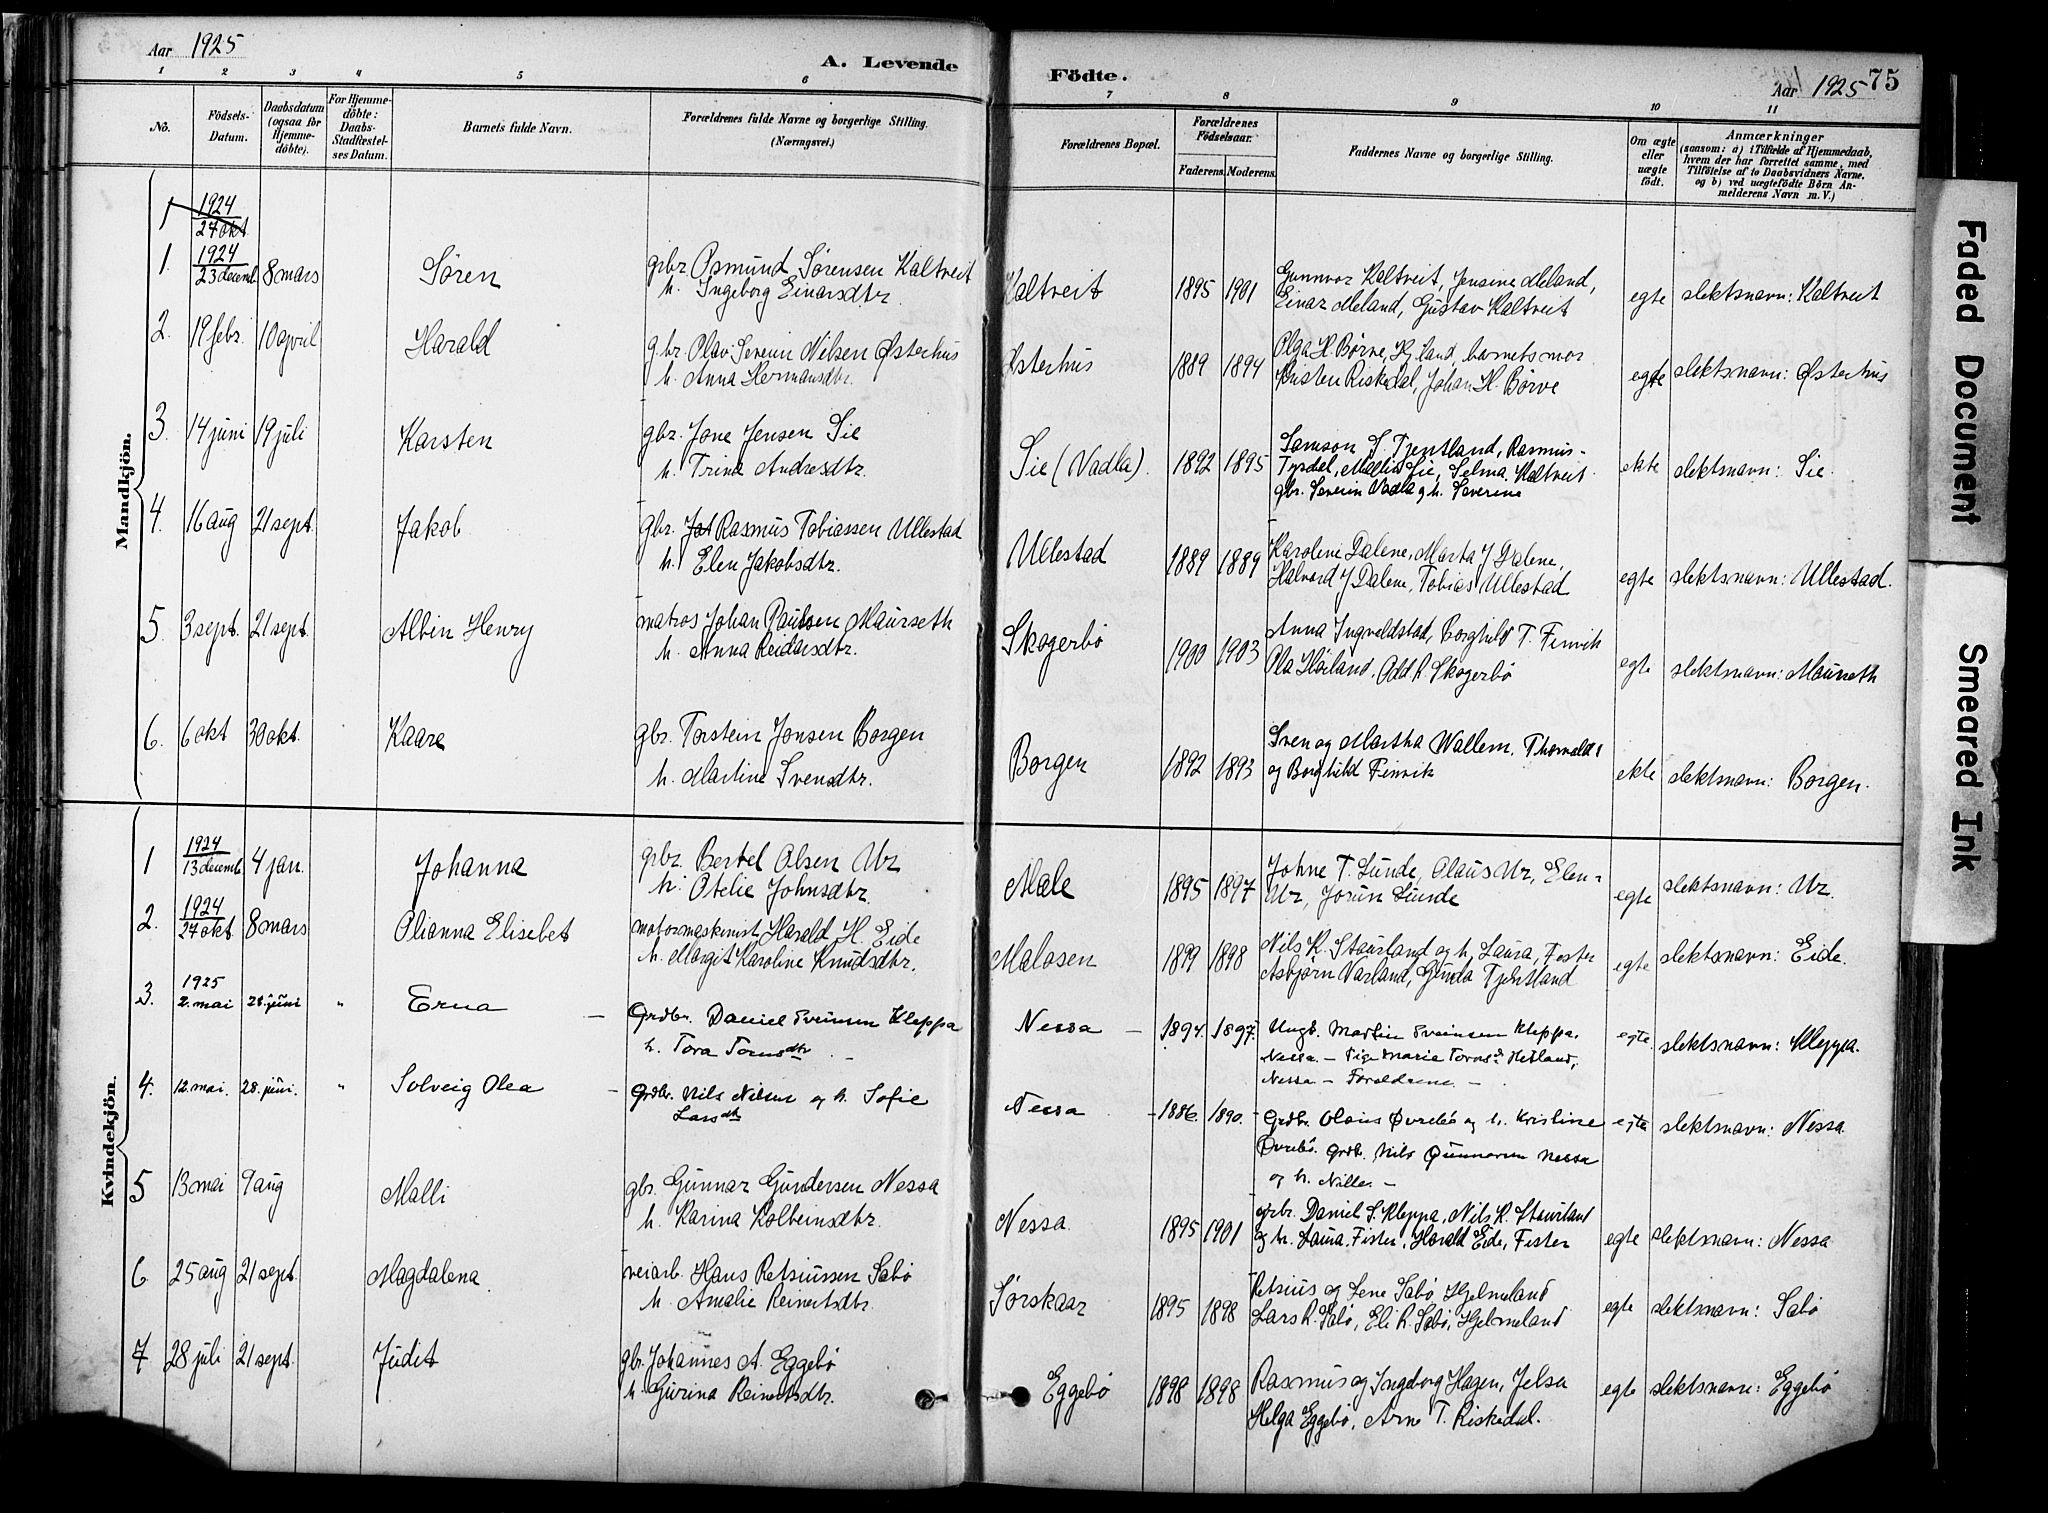 Aar 1925
A. Levende
Födte.
Aar 1925
75
1 2 3 4 5 6 7 8 9 10 11
No.
Födsels-Datum.
Daabsdatum (ogsaa for Hjemme-döbte).
For Hjemme-döbte: Daabs-Stadfæstel-ses Datum.
Barnets fulde Navn.
Forældrenes fulde Navne og borgerlige Stilling.
(Næringsvei.)
Forældrenes Bopæl.
Forældrenes Födselsaar.
Faderens. Moderens.
Faddernes Navne og borgerlige Stilling.
Om ægte eller uægte födt.
Anmærkninger
(saasom: a) i Tilfælde af Hjemmedaab, hvem der har forrettet samme, med Tilföielse af to Daabsvidners Navne, og b) ved uægtefödte Börn An-melderens Navn m. V.)
Mandkjön.
1 1924 27 okt.
1. 1924 23 decemb. 8 mars Søren grbr Osmund Sørensen Kaltveit
h. Ingeborg Einarsdtr.
Kaltveit 1895 1901 Gunnvor Kaltveit, Jensine Meland,
Einar Meland, Gustav Kaltveit
egte slektsnavn: Kaltveit
2. 19 febr. 10 april Harald g.br. Olav Severin Nilsen Østerhus
h. Anna Hermansdtr.
Østerhus 1889 1894 Olga H. Børve, Kj.land, barnets mor
Kristen Riskedal, Johan H. Børve
egte slektsnavn: Østerhus
3. 14 juni 19 juli Karsten gbr. Jone Jensen Sie
h. Trine Andresdtr.
Sie (Vadla). 1892 1895 Samson S. Tjentland, Rasmus
Tyrdal, Malli Sie, Selma Kaltveit
gbr. Severin Vadla og h. Severine
ekte slektsnavn: Sie.
4. 16 aug 21 sept. Jakob gbr. Rasmus Tobiassen Ullestad
h. Elen Jakobsdtr.
Ullestad 1889 1889 Karoline Dalene, Marta J Dalene,
Halvard J Dalene, Tobias Ullestad
egte slektsnavn: Ullestad.
5. 3 sept. 21 sept. Albin Henry matros Johan Paulsen Maurseth
h. Anna Reidarsdtr.
Skogerbö 1900 1903 Anna Ingvaldstad, Borghild T. Finvik
Ola Høiland, Odd R. Skogerbö
egte slektsnavn: Maurseth
6. 6 okt 30 okt. Kaare gbr. Torstein Jonsen Borgen
h. Martine Svensdtr.
Borgen 1892 1893 Sven og Martha Wallem, Thorvald
og Borghild Finvik
ekte slektsnavn: Borgen.
Kvindekjön.
1 1924 13 decemb. 4 jan. Johanna grbr. Bertel Olsen Ur
h. Otelie Johnsdtr.
Male 1895 1897 Johne T. Lunde, Olaus Ur, Elen
Ur, Jorun Lunde
egte slektsnavn: Ur.
2. 1924 27 okt. 8 mars Olianna Elisebet motormaskinist Harald H. Eide
h. Margit Karoline Knudsdtr.
Malasen 1899 1898 Nils K. Staurland og h. Laura, Fister
Asbjørn Vasland, Gunda Tjentland
egte slektsnavn: Eide.
3. 1925 2. mai 28. juni " Erna Grdbr. Daniel Sveinsen Kleppa
h. Tora Tomsdtr.
Nessa 1894. 1897. Ungk. Martin Sveinsen Kleppa.
Nessa. – Pige Marie Torsd. Hetland,
Nessa – Forældrene –
egte slektsnavn: Kleppa.
4. 12. mai. 28. juni. " Solveig Olea Grdbr. Nils Nilsen og h. Sofie
Larsdtr
Nessa 1886. 1890. Grdbr. Olaus Øvrebö og h. Kristine
Øvrebö. Grdb. Nils Gunnarsen Nessa
og h. Nille. –
egte slektsnavn: Nessa.
5 13 mai 9 aug Malli gbr. Gunnar Gundersen Nessa
h. Karina Kolbeinsdtr.
Nessa. 1895 1901 grbr. Daniel S. Kleppa, Nils K. Staurland
og h. Laura, Fister, Harald Eide, Fister
egte slektsnavn: Nessa
6 25 aug 21 sept. Magdalena veiarb. Hans Retsiussen Sabø
h. Amalie Reinertsdtr.
Sørskaar 1895 1898 Retsius og Lene Sabø, Hjelmeland
Lars R. Sabø, Eli R. Sabø, Hjelmeland
egte slektsnavn: Sabø
7 28 juli 21 sept. Judit gbr. Johannes A. Eggebø
h. Gurina Reinertsdtr.
Eggebø 1898 1898 Rasmus og Ingeborg Hagen, Jelsa
Helga Eggebø, Arne T. Riskedal.
egte slektsnavn: Eggebø
Faded Document
Smeared Ink